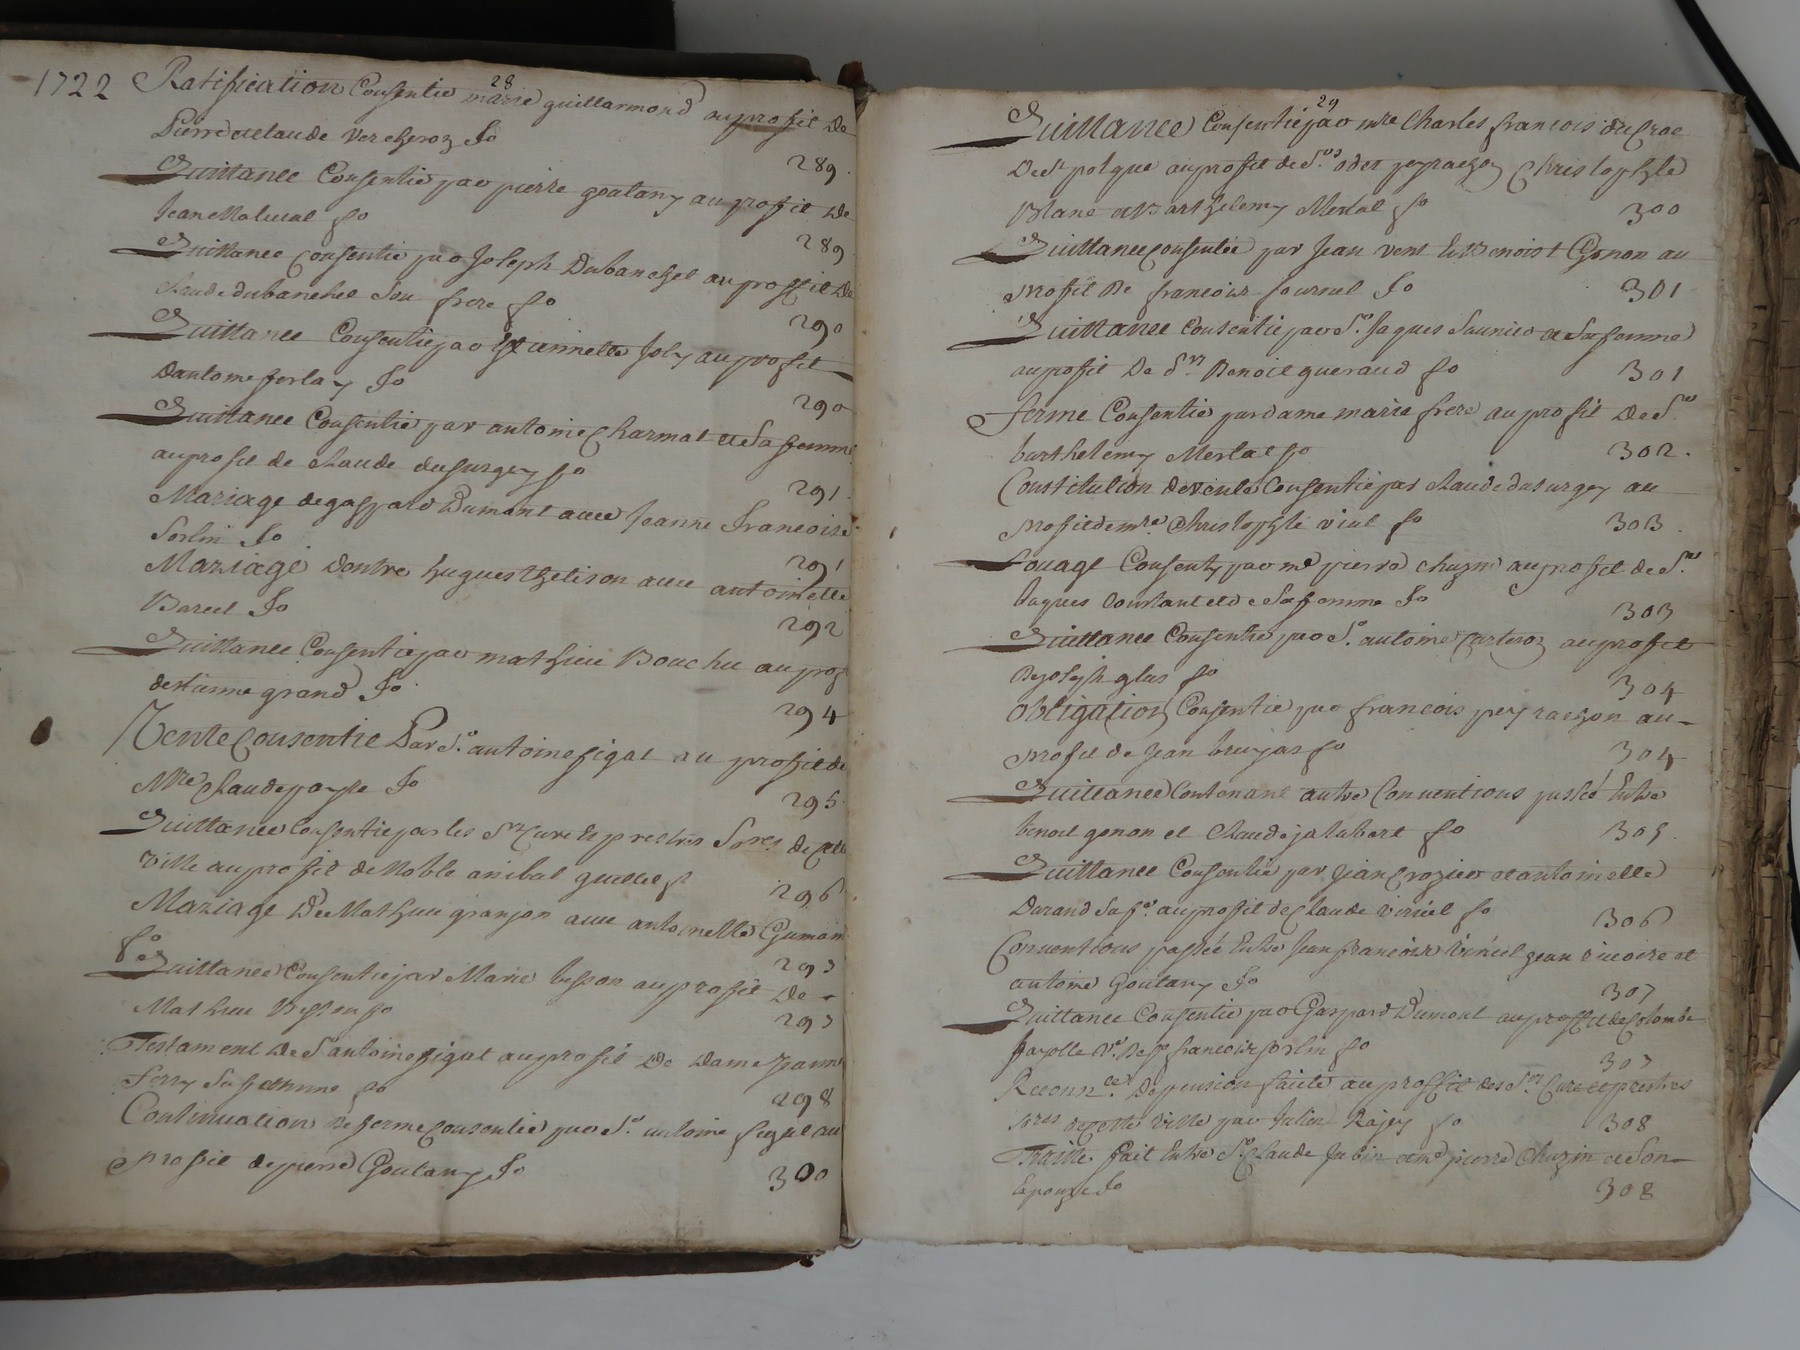 28
1722 Ratification Consentie marie guillarmond au profit de
Pierre et claude Vercheroz fo
289
Quittance Consentie par pierre goutany au profit de
Jean Matucal fo
289
Quittance Consentie par Joseph Dubanchet au proffit de
claude dubanchet son frere fo
290
Quittance Consentie par Estiennette Joly au profit
Dantoine ferlay fo
290
Quittance Consentie par antoine Charmat et Sa femme
au profit de claude dusurgey fo
291
Mariage de gaspard Dumont avec Jeanne francoise
Sorlin fo
291
Mariage Dentre hugues thetison avec antoinette
Barcel fo
292
Quittance Consentie par mathieu Bouchu au prof
destienne grand fo
294
Vente Consentie Par Sr antoine figat au profit de
Mre Claude payse fo
295
Quittance Consentie par les Srs Curé et prestres Sores de cette
ville au profit de Noble anibal guillet f
296
Mariage De Mathieu granjon avec antoinette Gumon
fo
297
Quittance Consentie par Marie besson au profit De
Mathieu Besson fo
297
Testament De S antoine figat au profit De Dame Jeanne
ferry Sa femme fo
298
Continuation de ferme Consentie par Sr antoine figat au
profit de pierre Goutany fo
300
29
Quittance Consentie par mre Charles francois ducroc
De St polgue au profit de Srs odet peyrachon Christophle
Blanc et Barthelemy Merlat fo
300
Quittance consentie par Jean vent et Benoist Gonon au
profit De francois fournel fo
301
Quittance Consentie par Sr Jaques Saunier et Sa femme
au profit De Srs Benoit gueraud fo
301
ferme Consentie par dame marie frere au profit De Sr
barthelemy Merlat fo
302.
Constitution de rente Consentie par claude dusurgey au
profit de mre Christophle vial fo
303.
Louage Consenty par me pierre chuzin au profit de Sr
Jaques Constant et de Sa femme fo
303
Quittance Consentie par Sr antoine Carteroz au profit
De joseph glas fo
304
Obligation Consentie par francois peyrachon au
profit de Jean brunjas fo
304
Quittance Contenant autre Conventions passée Entre
benoit gonon et claude jalabert fo
305.
Quittance Consentie par Jean Crozier et antoinette
Durand Sa fe au profit de Claude viricel fo
306
Conventions passée Entre Jean francois viricel jean vicoire et
antoine Goutany fo
307
Quittance Consentie par Gaspard Dumont au proffit de Colombe
fayolle Ve De fr francois Sorlin fo
307
Reconnce De pension faite au proffit des Srs Curé et prestres
Sores de cette ville par Julien Rajey fo
308
Traitté fait Entre Sr Claude Jubin et me pierre Chuzin et Son
Epouze fo
308